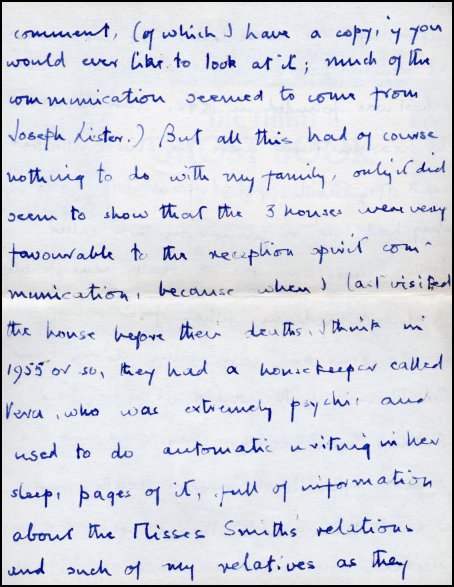 comment, (of which I have a copy, if you
would ever like to look at it; much of the
communication seemed to come from
Joseph Lister.) But all this had of course
nothing to do with my family, only it did
seem to show that the 3 houses were very
favourable to the reception spirit com-
munication, because when I last visited
the house before their deaths, I think in
1955 or so, they had a housekeeper called
Vera, who was extremely psychic and
used to do automatic writing in her
sleep, pages of it, full of information
about the Misses Smith's relations
and such of my relatives as they